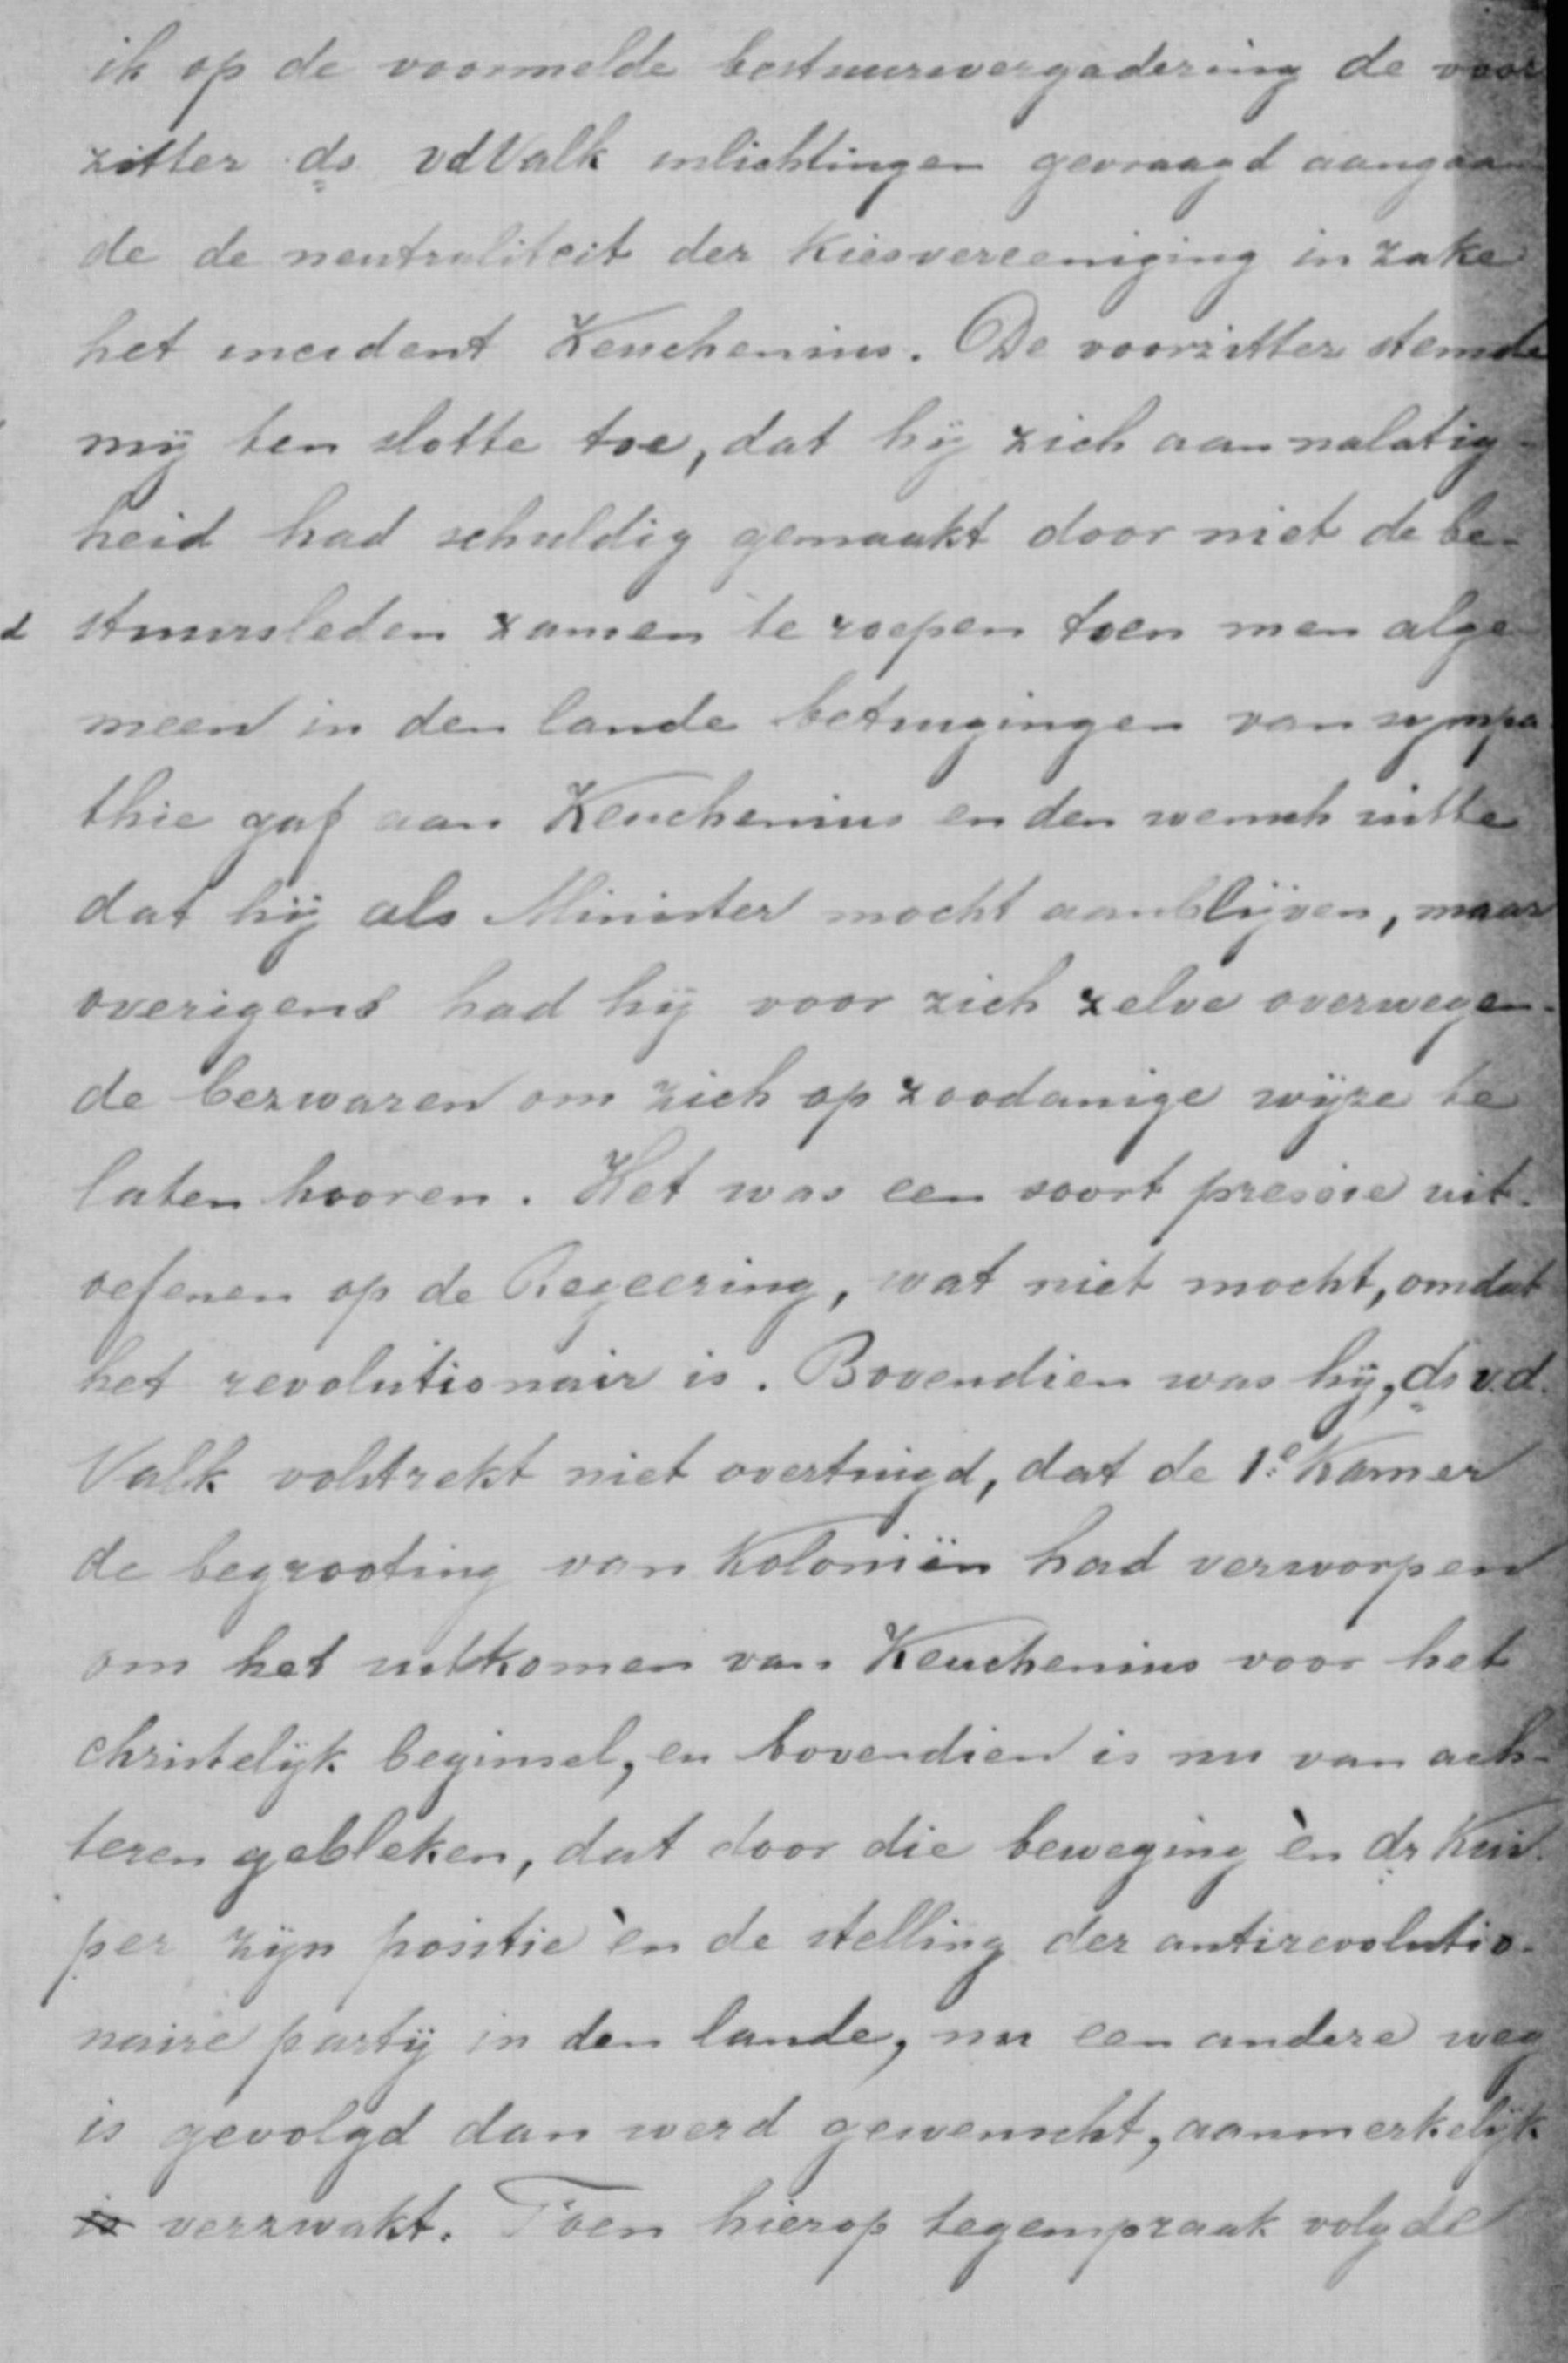 ik op de voormelde bestuursvergadering de voor
zitter ds vdValk inlichtingen gevraagd aangaan
de de neutraliteit der Kiesvereeniging in zake
het incident Keuchenius. De voorzitter stemde
mij ten slotte toe, dat hij zich aan nalatig-
heid had schuldig gemaakt door niet de be-
stuursleden zamen te roepen toen men alge
meen in den lande betuigingen van sympa
thie gaf aan Keuchenius en den wensch uitte
dat hij als Minister mocht aanblijven, maar
overigens had hij voor zich zelve overwegen-
de bezwaren om zich op zoodanige wijze te
laten hooren. Het was een soort pressie uit-
oefenen op de Regeering, wat niet mocht, omdat
het revolutionair is. Bovendien was hij, ds v.d.
Valk volstrekt niet overtuigd, dat de 1e Kamer
de begrooting van Koloniën had verworpen
om het uitkomen van Keuchenius voor het
christelijk beginsel, en bovendien is nu van ach-
teren gebleken, dat door die beweging èn dr Kui-
per zijn positie èn de stelling der antirevolutio-
naire partij in den lande, nu een andere weg
is gevolgd dan werd gewenscht, aanmerkelijk
is verzwakt. Toen hierop tegenspraak volgde